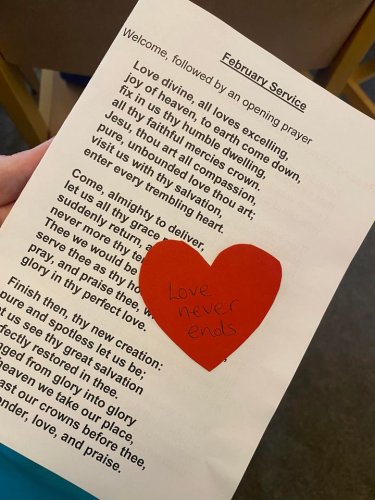 February Service
Welcome, followed by an opening prayer
Love divine, all loves excelling,
joy of heaven, to earth come down,
fix in us thy humble dwelling,
all thy faithful mercies crown.
Jesu, thou art all compassion,
pure, unbounded love thou art;
visit us with thy salvation,
enter every trembling heart.
Come, almighty to deliver,
let us all thy grace
suddenly return,
never more thy
Thee we would be
serve thee as thy
pray, and praise thee,
glory in thy perfect love.
Finish then, thy new creation:
pure and spotless let us be;
us see thy great salvation
restored in thee.
from glory into glory
heaven we take our place,
our crowns before thee,
love, and praise.
Love
never
ends